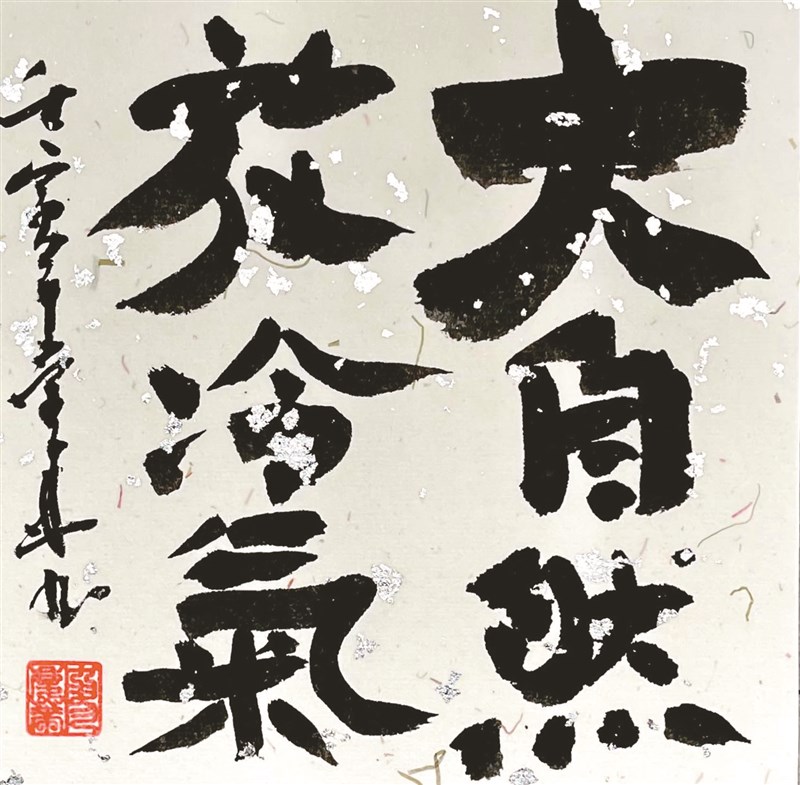 大自然
放冷氣
壬寅